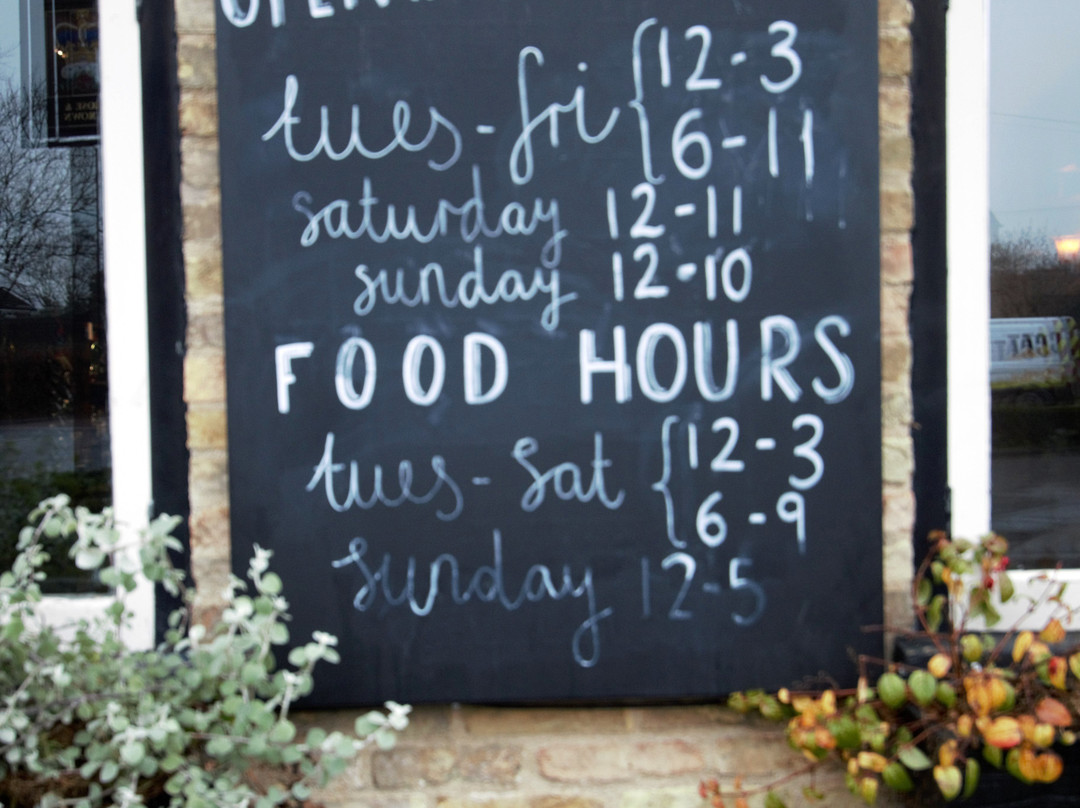 tues-fri { 12-3
6-11
saturday 12-11
sunday 12-10
FOOD HOURS
tues-Sat { 12-3
6-9
Sunday 12-5